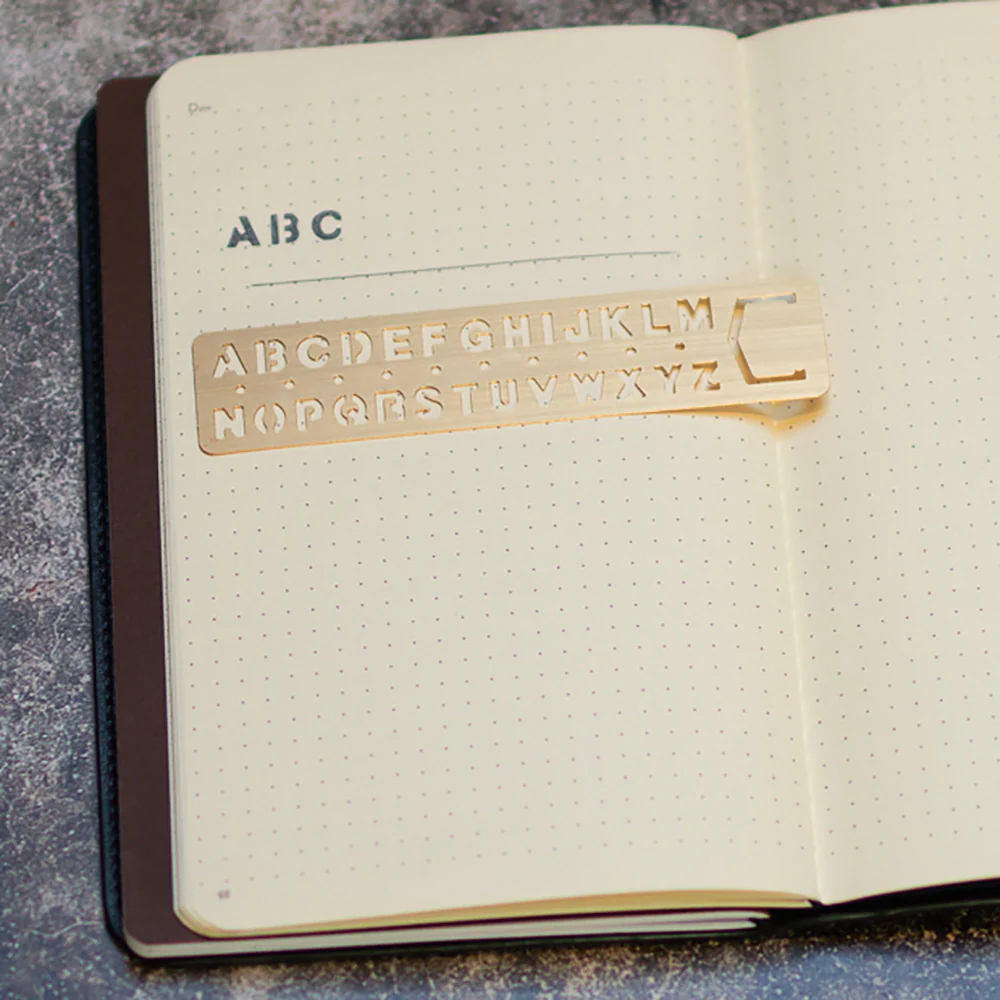 Date
ABC
ABCDEFGHIJKLM
NOPQRSTUVWXYZ